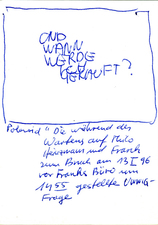 UND
WANN
WERDE
ICH
GEKAUFT?
Polaroid "Die während des
Wartens auf Thilo
Heinzmann und Frank
zum Bruch am 13 I 96
vor Franks Büro um
14 55 gestellte
Frage